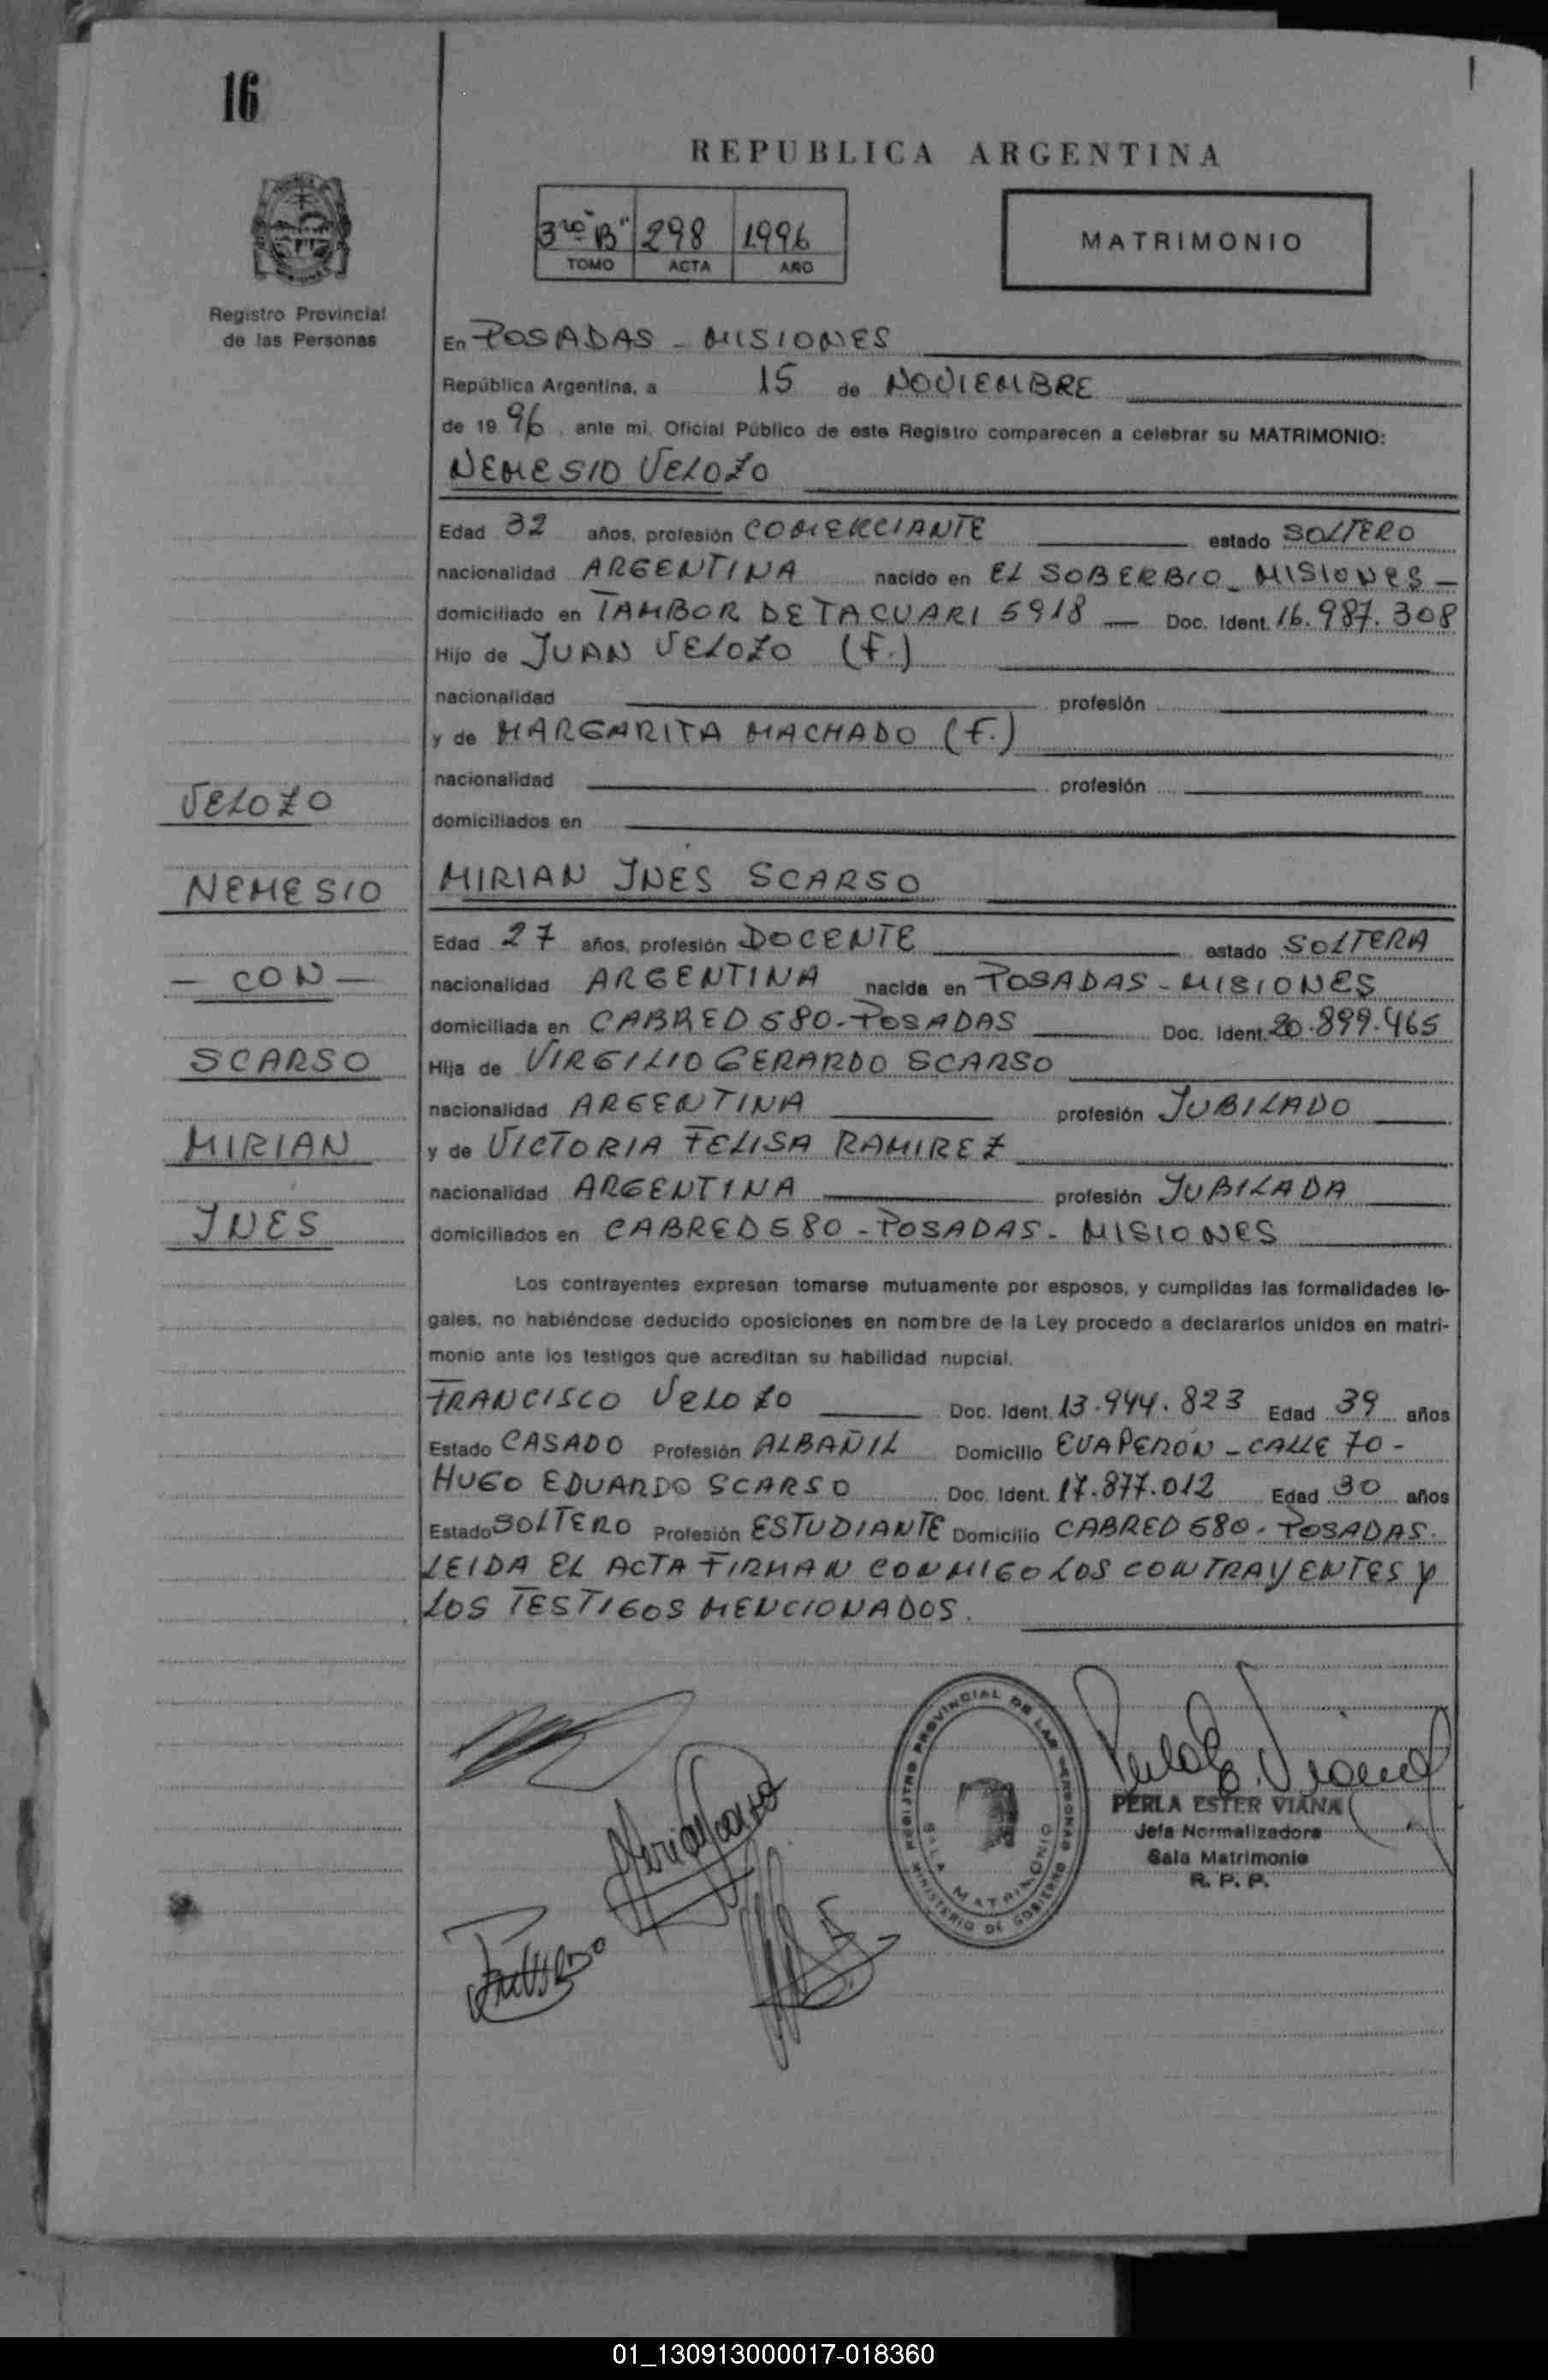 16
REPUBLICA ARGENTINA
3ro "B" 298 1996
TOMO ACTA AÑO
MATRIMONIO
Registro Provincial
de las Personas
En POSADAS - MISIONES
República Argentina, a 15 de NOVIEMBRE
de 19 96, ante mi, Oficial Público de este Registro comparecen a celebrar su MATRIMONIO:
NEMESIO VELOZO
Edad 32 años, profesión COMERCIANTE estado SOLTERO
nacionalidad ARGENTINA nacido en EL SOBERBIO - MISIONES -
domiciliado en TAMBOR DE TACUARI 5918 — Doc. Ident. 16.987.308
Hijo de JUAN VELOZO (F.)
nacionalidad profesión
y de MARGARITA MACHADO (F.)
nacionalidad profesión
domiciliados en
VELOZO
NEMESIO
- CON -
SCARSO
MIRIAN
INES
MIRIAN INES SCARSO
Edad 27 años, profesión DOCENTE estado SOLTERA
nacionalidad ARGENTINA nacida en POSADAS - MISIONES
domiciliada en CABRED 580 - POSADAS Doc. Ident. 20.899.465
Hija de VIRGILIO GERARDO SCARSO
nacionalidad ARGENTINA profesión JUBILADO
y de VICTORIA FELISA RAMIREZ
nacionalidad ARGENTINA profesión JUBILADA
domiciliados en CABRED 580 - POSADAS - MISIONES
Los contrayentes expresan tomarse mutuamente por esposos, y cumplidas las formalidades le-
gales, no habiéndose deducido oposiciones en nombre de la Ley procedo a declararlos unidos en matri-
monio ante los testigos que acreditan su habilidad nupcial.
FRANCISCO VELOZO Doc. Ident. 13.944.823 Edad 39 años
Estado CASADO Profesión ALBAÑIL Domicilio EVA PERÓN - CALLE 70 -
HUGO EDUARDO SCARSO Doc. Ident. 17.877.012 Edad 30 años
Estado SOLTERO Profesión ESTUDIANTE Domicilio CABRED 580 - POSADAS.
LEIDA EL ACTA FIRMAN CONMIGO LOS CONTRAYENTES Y
LOS TESTIGOS MENCIONADOS.
REGISTRO PROVINCIAL DE LAS PERSONAS
SALA MATRIMONIO
MINISTERIO DE GOBIERNO
PERLA ESTER VIANA
Jefa Normalizadora
Sala Matrimonio
R. P. P.
01_130913000017-018360